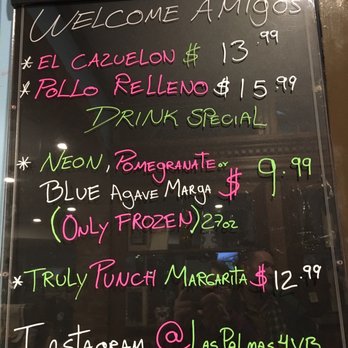 WELCOME AMIGOS
* EL CAZUELON $ 13.99
* POLLO RELLENO $ 15.99
DRINK SPECIAL
* NEON, POMEGRANATE or
BLUE AGAVE MARGA $ 9.99
(ONLY FROZEN) 27oz
* TRULY PUNCH MARGARITA $ 12.99
INSTAGRAM @LASPALMAS4VB